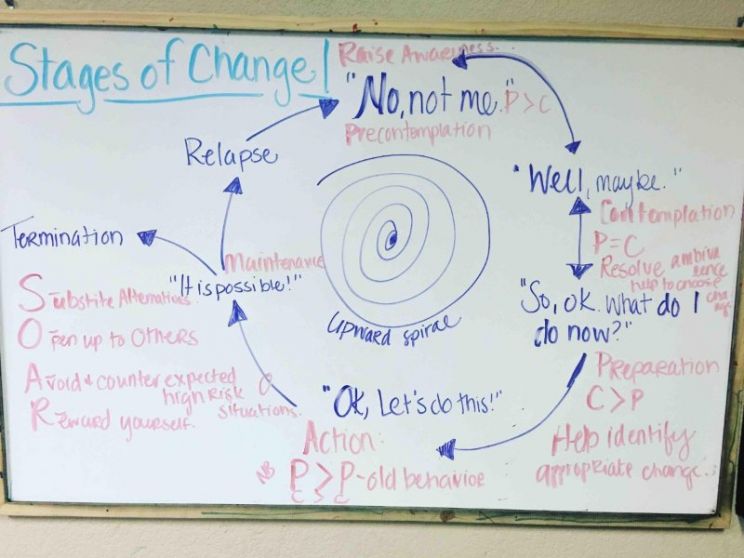 Stages of Change!
Raise Awareness..
"No, not me." P>C
Precontemplation
Relapse
"Well, maybe."
Contemplation
P=C
Resolve ambivalence
help to choose
change
"So, ok. What do I
do now?"
Preparation
C>P
Help identify
appropriate change.
"Ok, Let's do this!"
Action:
NB P>P-old behavior
C C
Maintenance
"It is possible!"
Termination
Upward spiral
Open up to Others
Avoid & counter expected
high Risk
situations.
Reward yourself.